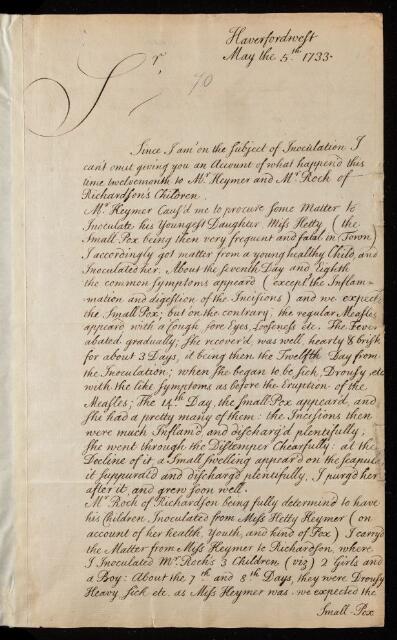 Haverfordwest
May the 5.th 1733.
Sr
70
Since I am on the Subject of Inoculation I
can't omit giving you an Account of what happend this
time twelvemonth to Mr. Heymer and Mr. Rock of
Richardson's Children.
Mr. Heymer Caus'd me to procure some Matter to
Inoculate his Youngest Daughter Miss Hetty (the
Small Pox being then very frequent and fatal in Town)
I accordingly got matter from a young healthy Child, and
Inoculated her. About the seventh Day and Eighth
the common Symptoms appeard (except the Inflam-
mation and digestion of the Incisions) and we expect
the Small Pox; but on the contrary, the regular Measles
appeard with a Cough, sore Eyes, Looseness etc. The Fever
abated gradually; She recover'd was well, hearty & brisk
for about 3 Days, it being then the Twelfth Day from
the Inoculation; when She began to be sick, Drousy, etc
with the like Symptoms as before the Eruption of the
Measles; The 14th. Day, the Small Pox appeard, and
She had a pretty many of them: the Incisions then
were much Inflam'd and discharg'd plentifully.
She went through the Distemper Chearfully: at the
Decline of it, a Small Swelling appeard on the Scapula
it suppurated and discharg'd plentifully, I purg'd her
after it, and grew soon well.
Mr Rock of Richardson being fully determind to have
his Children Inoculated from Miss Hetty Heymer (on
account of her health, Youth, and kind of Pox) I carryd
the Matter from Miss Heymer to Richardson, where
I Inoculated Mr. Rock's 3 Children (viz) 2 Girls and
a Boy: About the 7th and 8th Days, they were Drousy
Heavy, sick etc. as Miss Heymer was. we expected the
Small-Pox